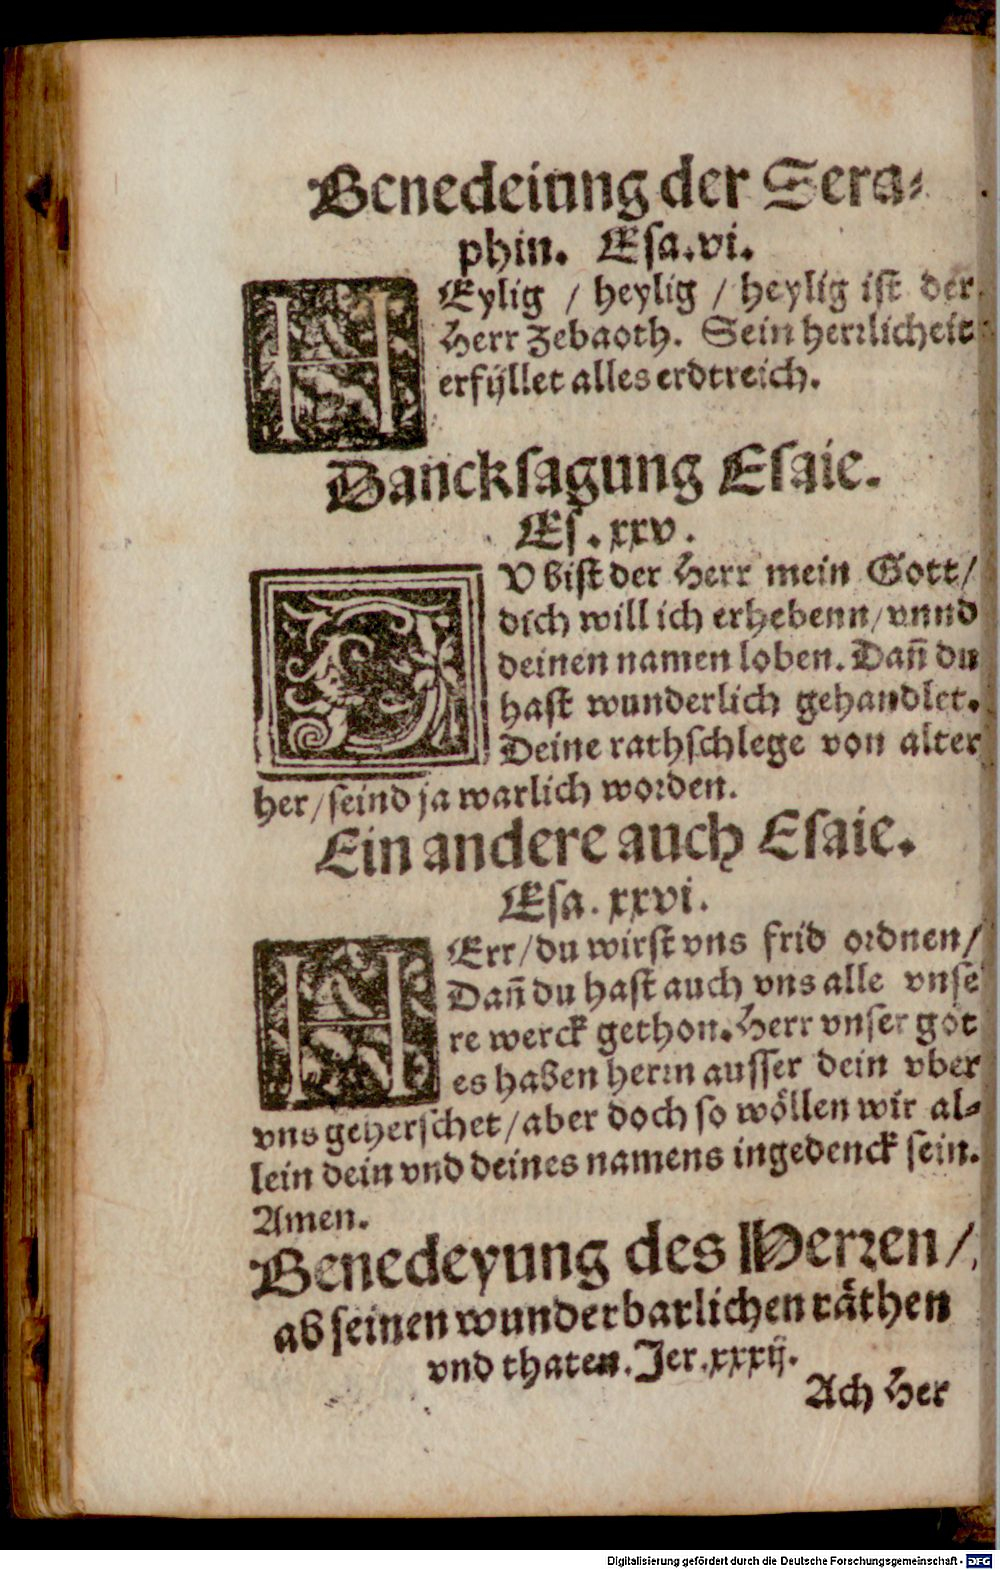 Benedeiung der Sera⸗
phin. Esa.vi.
HEylig / heylig / heylig ist der
Herr Zebaoth. Sein herꝛlicheit
erfÿllet alles erdtreich.
Dancksagung Esaie.
Es. xxv.
DV bist der Herr mein Gott/
dich will ich erhebenn/vnnd
deinen namen loben. Dañ du
hast wunderlich gehandlet.
Deine rathschlege von alter
her/seind ja warlich woꝛden.
Ein andere auch Esaie.
Esa. xxvi.
HErr/du wirst vns frid oꝛdnen/
Dañ du hast auch vns alle vnse
re werck gethon. Herr vnser got
es haben herrn ausser dein vber
vns geherschet/aber doch so wöllen wir al⸗
lein dein vnd deines namens ingedenck sein.
Amen.
Benedeyung des Herꝛen/
ab seinen wunderbarlichen räthen
vnd thaten. Jer.xxxij.
Ach Her
Digitalisierung gefördert durch die Deutsche Forschungsgemeinschaft - DFG